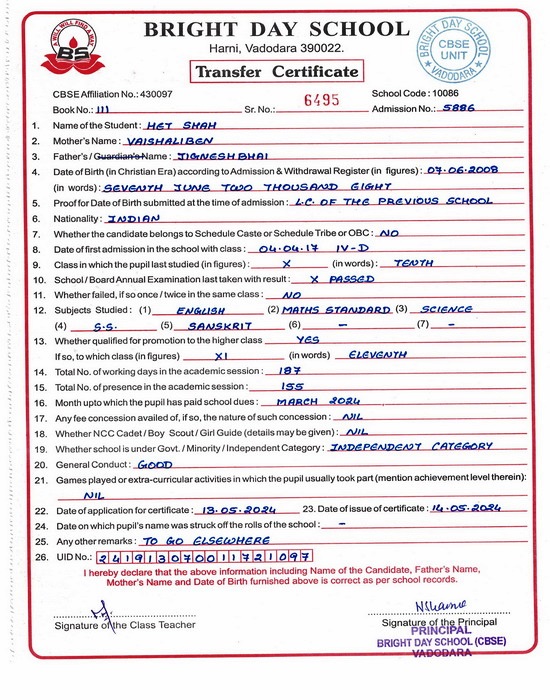 A WILL WILL FIND A WAY
BS
BRIGHT DAY SCHOOL
Harni, Vadodara 390022.
Transfer Certificate
BRIGHT DAY SCHOOL
CBSE
UNIT
VADODARA
CBSE Affiliation No.: 430097 School Code : 10086
Book No.: III Sr. No.: 6495 Admission No.: 5886
1. Name of the Student : HET SHAH
2. Mother's Name : VAISHALIBEN
3. Father's / Guardian's Name : JIGNESHBHAI
4. Date of Birth (in Christian Era) according to Admission & Withdrawal Register (in figures) : 07.06.2008
(in words) : SEVENTH JUNE TWO THOUSAND EIGHT
5. Proof for Date of Birth submitted at the time of admission : L.C. OF THE PREVIOUS SCHOOL
6. Nationality : INDIAN
7. Whether the candidate belongs to Schedule Caste or Schedule Tribe or OBC : NO
8. Date of first admission in the school with class : 04.04.17 IV-D
9. Class in which the pupil last studied (in figures) : X (in words) : TENTH
10. School / Board Annual Examination last taken with result : X PASSED
11. Whether failed, if so once / twice in the same class : NO
12. Subjects Studied : (1) ENGLISH (2) MATHS STANDARD (3) SCIENCE
(4) S.S. (5) SANSKRIT (6) – (7) –
13. Whether qualified for promotion to the higher class YES
If so, to which class (in figures) XI (in words) ELEVENTH
14. Total No. of working days in the academic session : 187
15. Total No. of presence in the academic session : 155
16. Month upto which the pupil has paid school dues : MARCH 2024
17. Any fee concession availed of, if so, the nature of such concession : NIL
18. Whether NCC Cadet / Boy Scout / Girl Guide (details may be given) : NIL
19. Whether school is under Govt. / Minority / Independent Category : INDEPENDENT CATEGORY
20. General Conduct : GOOD
21. Games played or extra-curricular activities in which the pupil usually took part (mention achievement level therein):
NIL
22. Date of application for certificate : 13.05.2024 23. Date of issue of certificate : 14.05.2024
24. Date on which pupil's name was struck off the rolls of the school : –
25. Any other remarks : TO GO ELSEWHERE
26. UID No.: 241913070011721097
I hereby declare that the above information including Name of the Candidate, Father's Name,
Mother's Name and Date of Birth furnished above is correct as per school records.
Signature of the Class Teacher
Signature of the Principal
PRINCIPAL
BRIGHT DAY SCHOOL (CBSE)
VADODARA